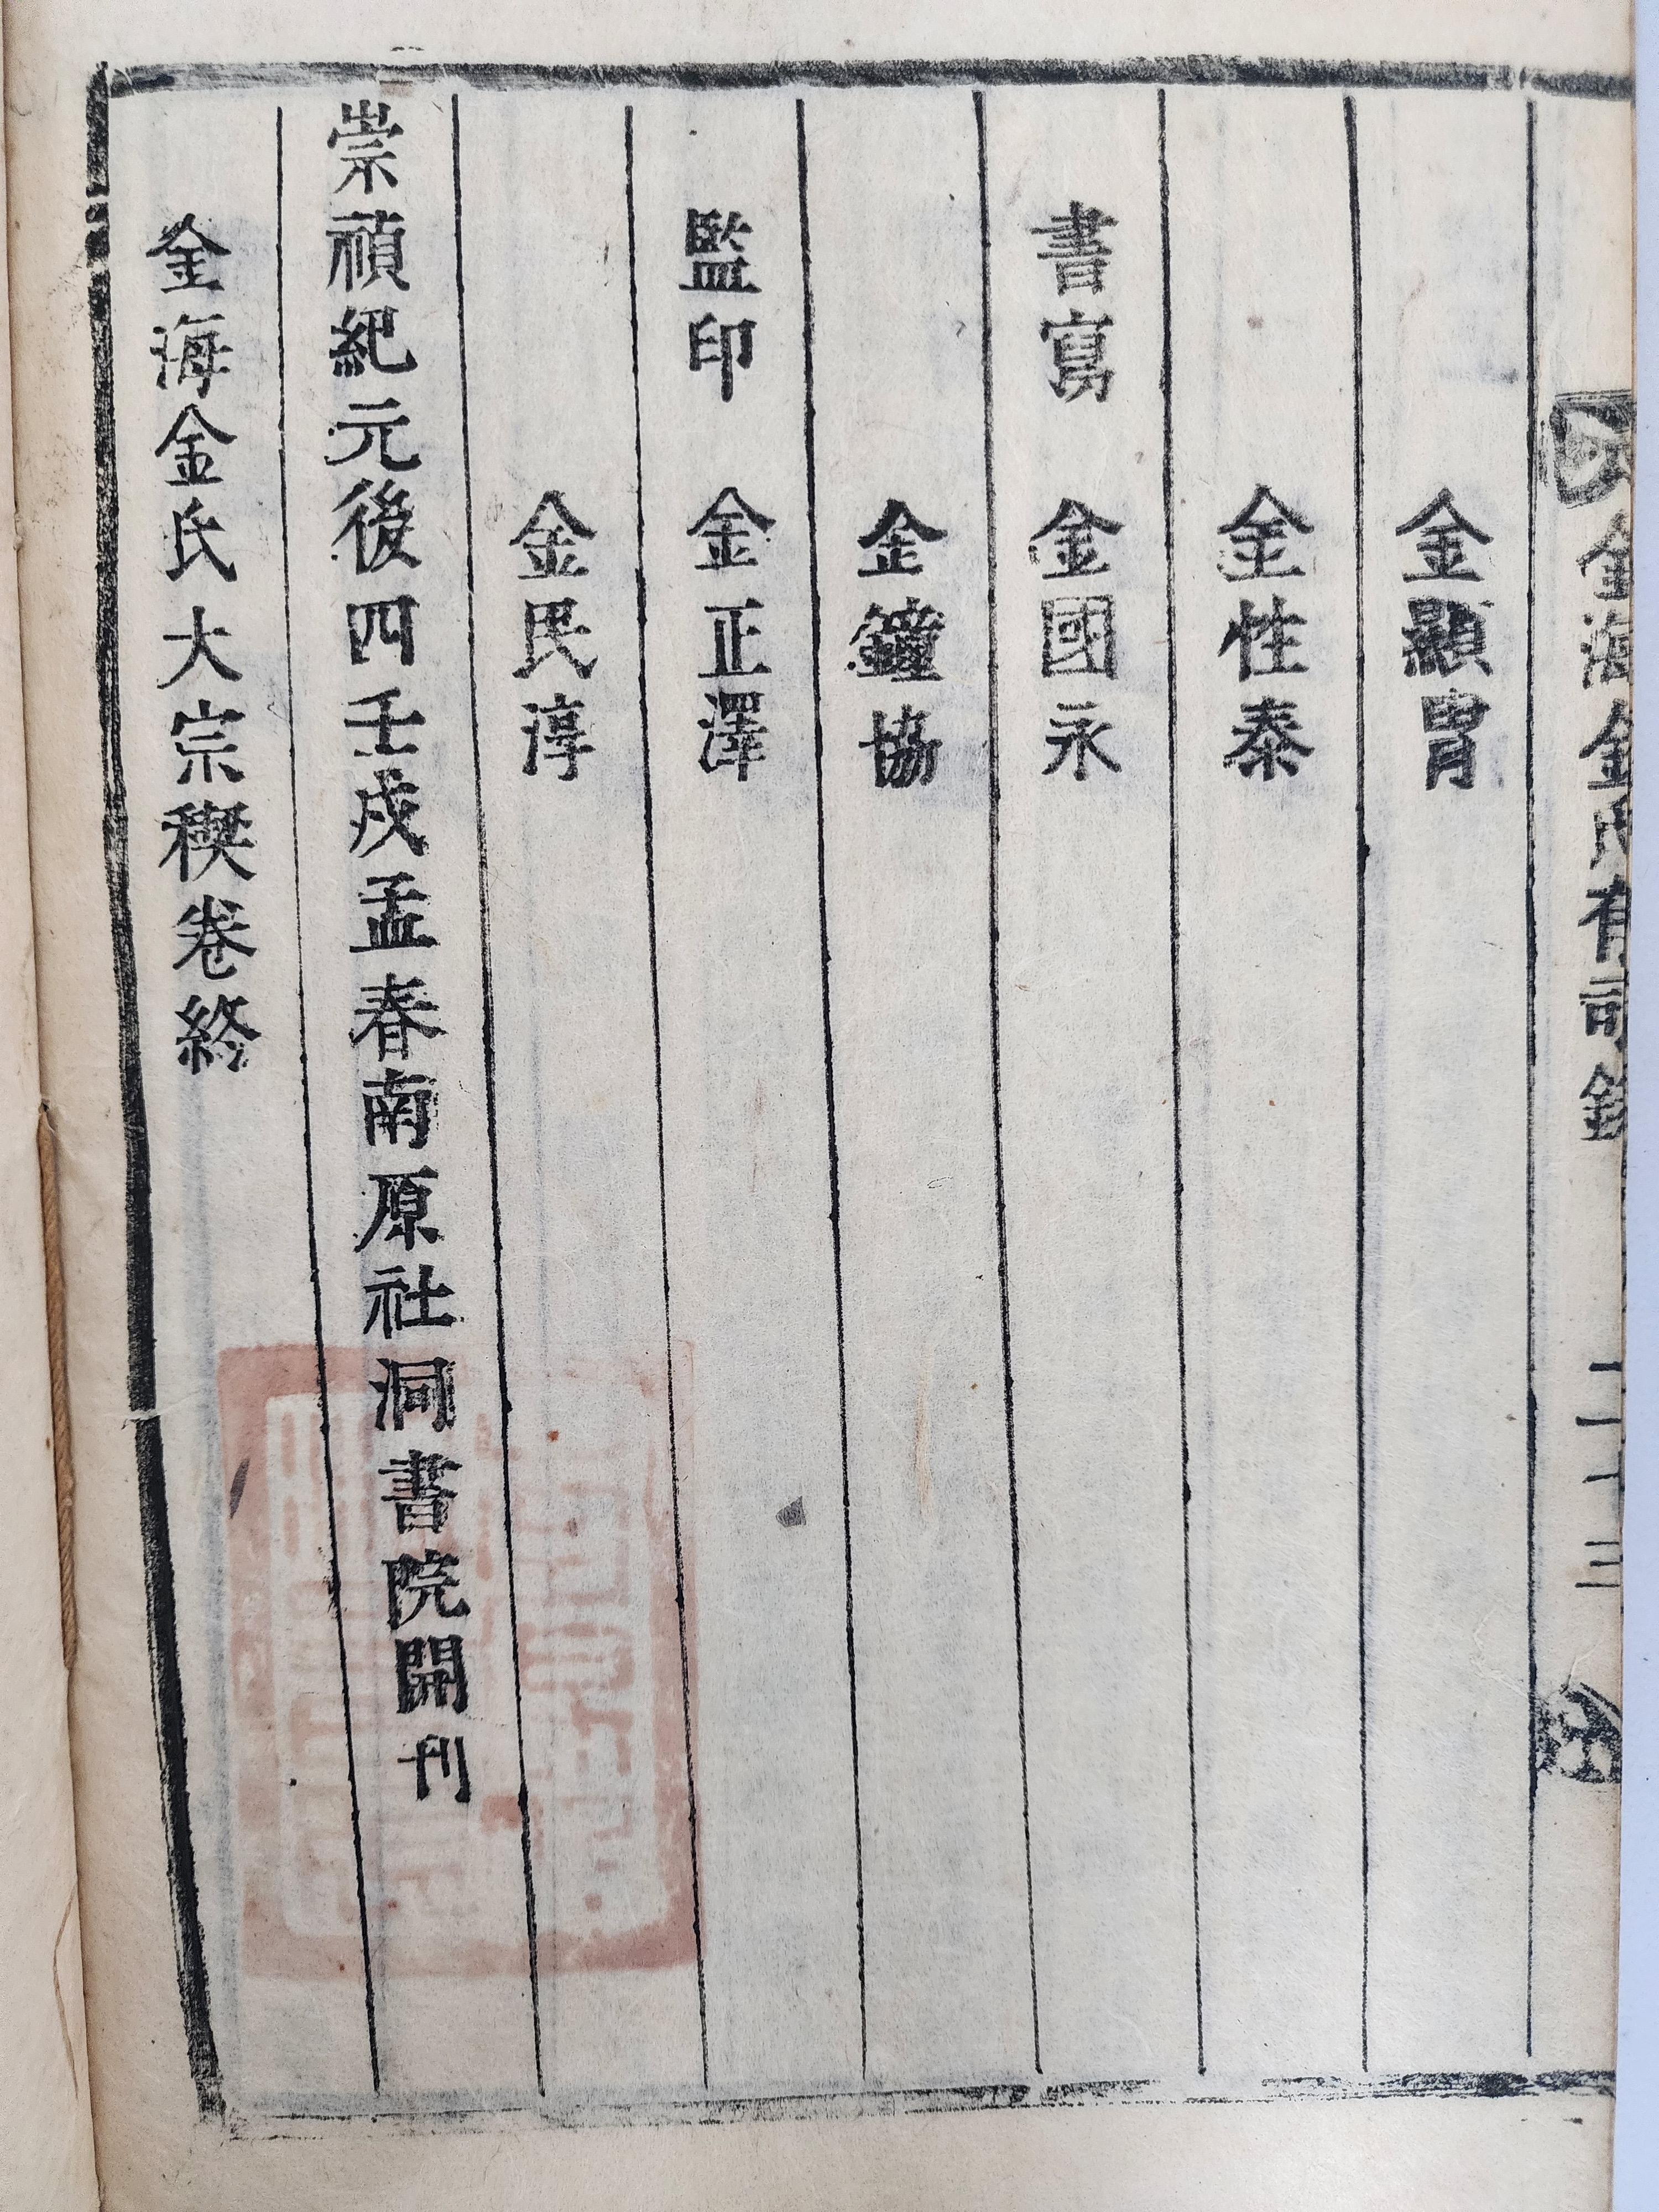 金海金氏有司錄 二十三
金顯冑
金性泰
書寫 金國永
金鐘協
監印 金正澤
金民淳
崇禎紀元後四壬戌孟春南原社洞書院開刊
金海金氏大宗稧卷終